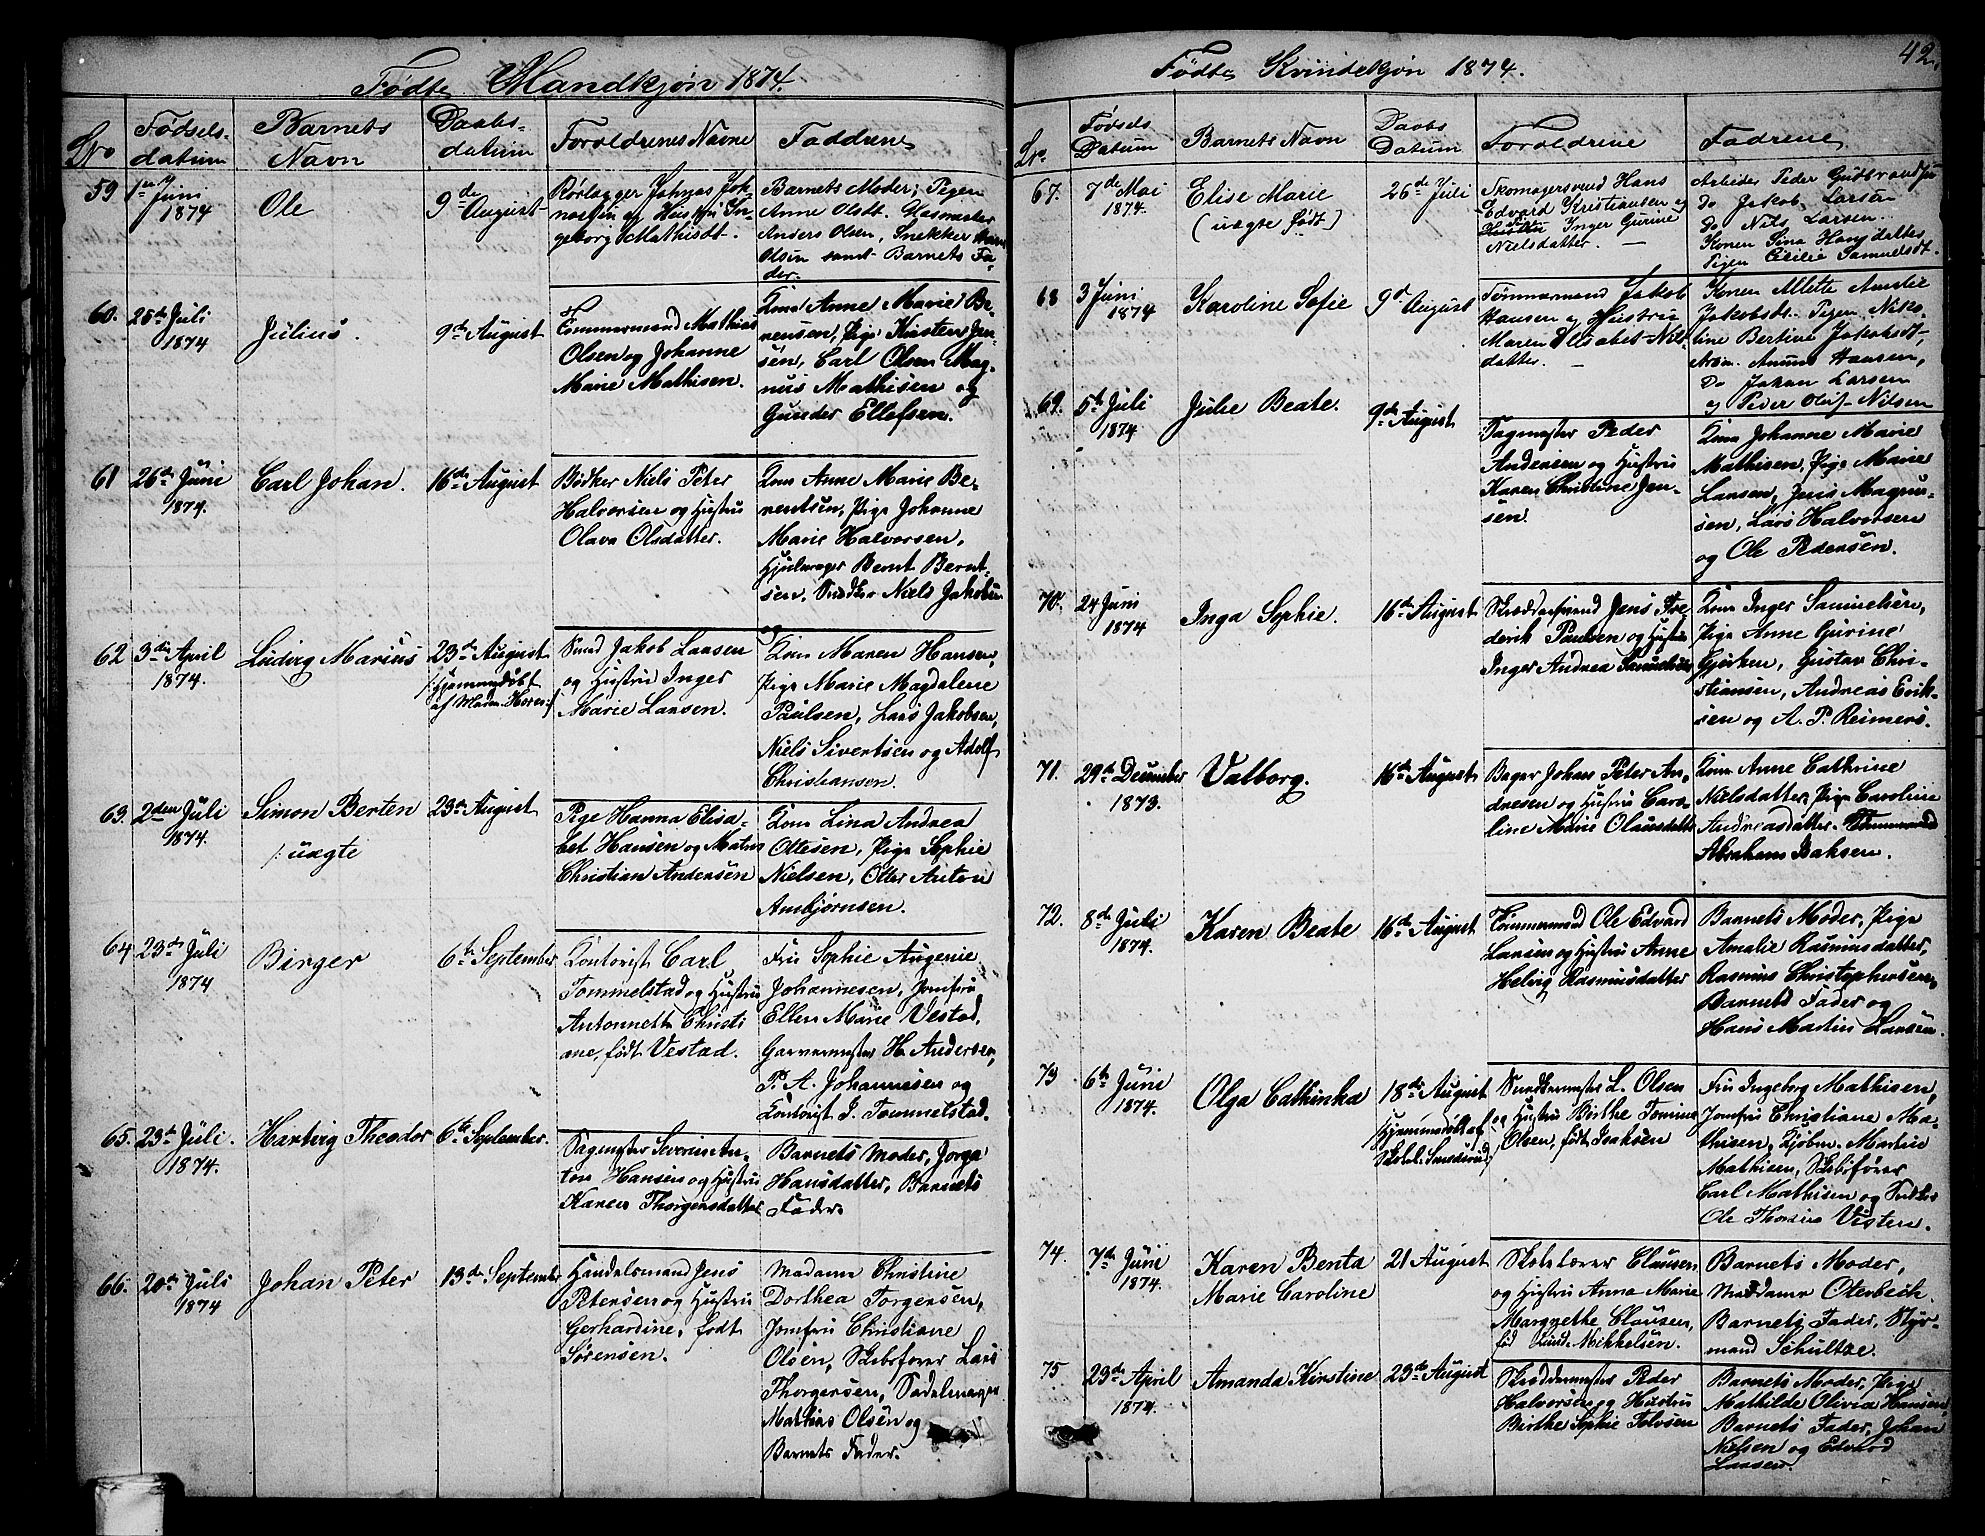 Fødte Mandkjøn 1874.
No
Fødsels-
datum
Barnets
Navn
Daabs-
datum
Forældrenes Navne
Faddrene
59
1ste Juni
1874
Ole
9de
August
nossen og Hustru In-
geborg Mathisdt.
Barnets Moder, Pigen
Anne Olsdt.
Anders Olsen, Snekker
Olsen samt Barnets Fa-
der.
60.
25de Juli
1874
Julius.
9de August
Tømmermand Mathias
Olsen og Johanne
Marie Mathisen.
Kone Anne Marie Be-
rentsen, Pige Kirsten Jen-
sen, Carl Olsen Mag-
nus Mathisen og
Gunder Ellefsen.
61
26de Juni
1874.
Carl Johan.
16de August
Bødker Niels Peter
Halvorsen og Hustru
Olava Olsdatter.
Kone Anne Marie Be-
rentsen, Pige Johanne
Marie Halvorsen,
Hjulmager Bernt Bernt-
sen, Snedker Niels Jakobsen
62
3de April
1874.
Ludvig Marius
23de August
/:Hjemmedøbt
af Madm.
Smed Jakob Larsen
og Hustru Inger
Marie Larsen.
Kone Maren Hansen,
Pige Marie Magdalene
Paulsen, Lars Jakobsen,
Niels Sivertsen og Adolf
Christiansen.
63.
2den Juli
1874.
Simon Berten
/: uægte
23de August
Pige Hanna Elisa-
bet Hansen og Matros
Christian Andersen
Kone Lina Andrea
Ottesen, Pige Sophie
Nielsen, Otter Anton
Ambjørnsen.
64
23de Juli
1874
Birger
6te September
Kontorist Carl
Tommelstad og Hustru
Antonnette Christi
ane, født Vestad.
Fru Sophie Augenie
Johannesen, Jomfru
Ellen Marie Vestad,
Garvermester H. Andersen,
P. A. Johannesen og
Kontorist J. Tommelstad.
65.
23de Juli.
1874.
Hartvig Theodor
6te September.
Sagmester Severin An-
ton Hansen og Hustru
Karen Thorgensdatter
Barnets Moder, Jorga
Hansdatter, Barnets
Fader
66.
20de Juli
1874
Johan Peter
13de September
Handelsmand Jens
Petersen og Hustru
Gerhardine, født
Sørensen.
Madame Christine
Dorthea Torgersen,
Jomfru Christiane
Olsen, Skibsfører Lars
Thorgersen, Sadelmager
Mathias Olsen og
Barnets Fader.
Fødte Kvindekjøn 1874.
42.
No.
Fødsels
Datum
Barnets Navn
Daabs
Datum
Forældrene
Fadrene
67.
7de Mai
1874.
Elise Marie
(uægte født)
26de Juli
Skomagersvend Hans
Edvard Kristiansen og
Inger Gurine
Nielsdatter. —
Arbeider Peder
Do Jakob Larsen
Do Nils Larsen.
Konen Sina Hansdatter
Pigen Cicilie Samuelsdt.
68
3 Juni
1874
Karoline Sofie
9de August
Tømmermand Jakob
Hansen og Hustru
Maren Elisabet Nils
datter. —
Konen Allette Amalie
Jakobsdt. Pigen Niko-
line Bertine Jakobsdt,
Hansen,
Do Johan Larsen
og Peder Oluf Nilsen
69.
5te Juli
1874
Julie Beate.
9de August
Sagmester Peder
Andersen og Hustru
Karen Christine Jen-
sen.
Kone Johanne Marie
Mathisen, Pige Marie
Larsen, Jens Magnus-
sen, Lars Halvorsen
og Ole Pedersen.
70.
24 Juni
1874
Inga Sophie.
16de August
Skræddersvend Jens Fre-
derik Paulsen og Hustru
Inger Andrea Samuelsen
Kone Inger Samuelsen,
Pige Anne Gurine
Gjerken, Gustav Chri-
stiansen, Andreas Erik-
sen og A. P. Reimers.
71.
29de December
1873.
Valborg.
16de August
Bager Johan Peter An-
dresen og Hustru Caro-
line Marie Olausdatter
Kone Anne Cathrine
Nielsdatter, Pige Caroline
Andreasdatter. Tømmermand
Abraham Isaksen.
72.
8de Juli
1874.
Karen Beate
16de August
Tømmermand Ole Edvard
Larsen og Hustru Anne
Helvig Rasmusdatter
Barnets Moder, Pige
Amalie Rasmusdatter,
Rasmus Christophersen,
Barnets Fader og
Hans Martin Larsen.
73
6te Juni
1874.
Olga Cathinka
18de August
/:Hjemmedøbt af
Skolel. Smedsrud:/
Snedkermester L. Olsen
og Hustru Birthe Tomine
Olsen, født Isaksen
Fru Ingeborg Mathisen,
Jomfru Christiane Ma-
thisen, Kjøbm. Martin
Mathisen, Skibsfører
Carl Mathisen og Snedker
Ole Thorsius Visten.
74.
7de Juni
1874.
Karen Benta
Marie Caroline
21 August
Skolelærer Clausen
og Hustru Anna Marie
Marggrethe Clausen,
fød Mikkelsen.
Barnets Moder,
Maddame Oterbech.
Barnets Fader, Styr-
mand Schultze.
75
23de April
1874.
Amanda Kirstine
23de August
Skræddermester Peder
Halvorsen og Hustru
Birthe Sophie Tolvsen
Barnets Moder, Pige
Mathilde Olivia Hansen,
Barnets Fader, Johan
Nielsen og Edvard
Larsen.